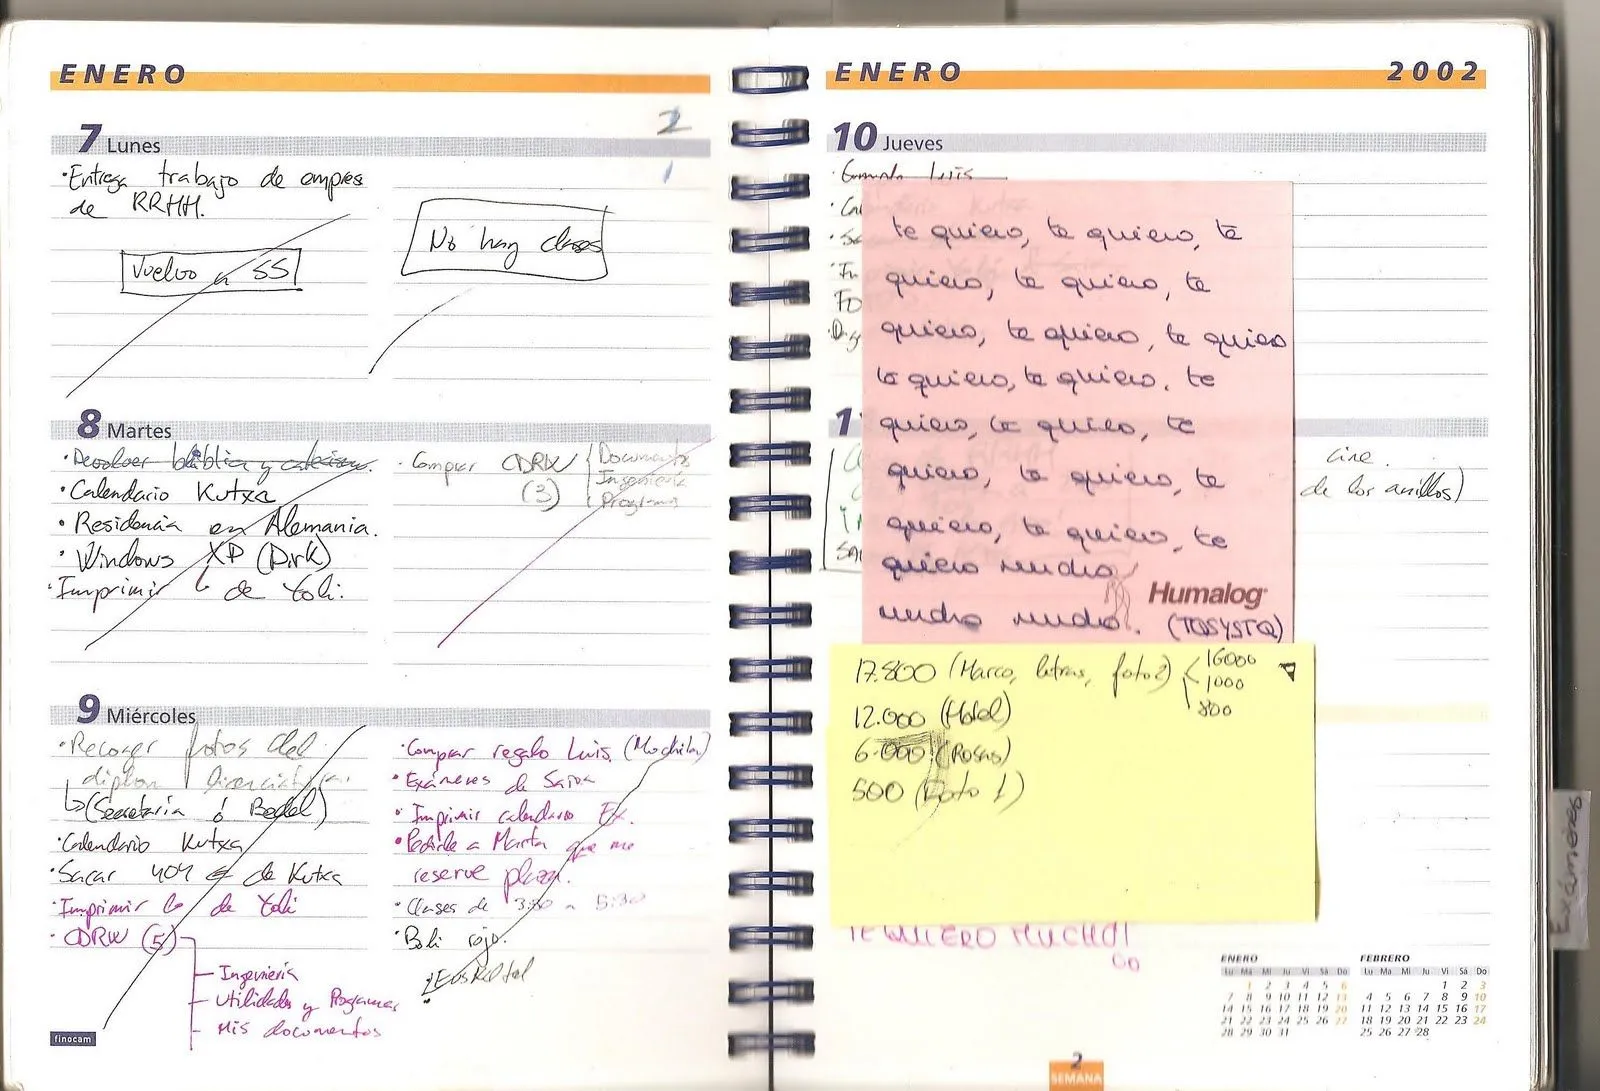 ENERO
7 Lunes
2
1
·Entrega trabajo de empresa
de RRHH.
Vuelvo a SS
No hay clases
8 Martes
·Devolver biblia y catecismo.
·Calendario Kutxa
·Residencia en Alemania.
·Windows XP (Dirk)
·Imprimir lo de Yoli.
·Comprar CDRW (3)
Documentos
Ingeniería
Programas
9 Miércoles
·Recoger fotos del
diploma licenciatura.
(Secretaría ó Bedel)
·Calendario Kutxa
·Sacar 404 € de Kutxa
·Imprimir lo de Yoli
·CDRW (5)
Ingeniería
Utilidades y Programas
Mis documentos
·Comprar regalo Luis. (Mochila)
·Exámenes de Saioa
·Imprimir calendario Ex.
·Pedirle a Marta que me
reserve plaza.
·Clases de 3:30 a 5:30
·Boli rojo.
finocam
ENERO 2002
10 Jueves
Luis
te quiero, te quiero, te
quiero, te quiero, te
quiero, te quiero, te quiero
te quiero, te quiero, te
quiero, te quiero, te
quiero, te quiero, te
quiero, te quiero, te
quiero mucho
mucho mucho. (TQSYSTQ)
Humalog
1
cine.
de los anillos)
17.800 (Marco, letras, foto2)
16000
1000
800
12.000 (Hotel)
6.000 (Rosas)
500 (Foto 1)
TE QUIERO MUCHO!
Exámenes
ENERO
Lu Ma Mi Ju Vi Sá Do
1 2 3 4 5 6
7 8 9 10 11 12 13
14 15 16 17 18 19 20
21 22 23 24 25 26 27
28 29 30 31
FEBRERO
Lu Ma Mi Ju Vi Sá Do
1 2 3
4 5 6 7 8 9 10
11 12 13 14 15 16 17
18 19 20 21 22 23 24
25 26 27 28
2
SEMANA